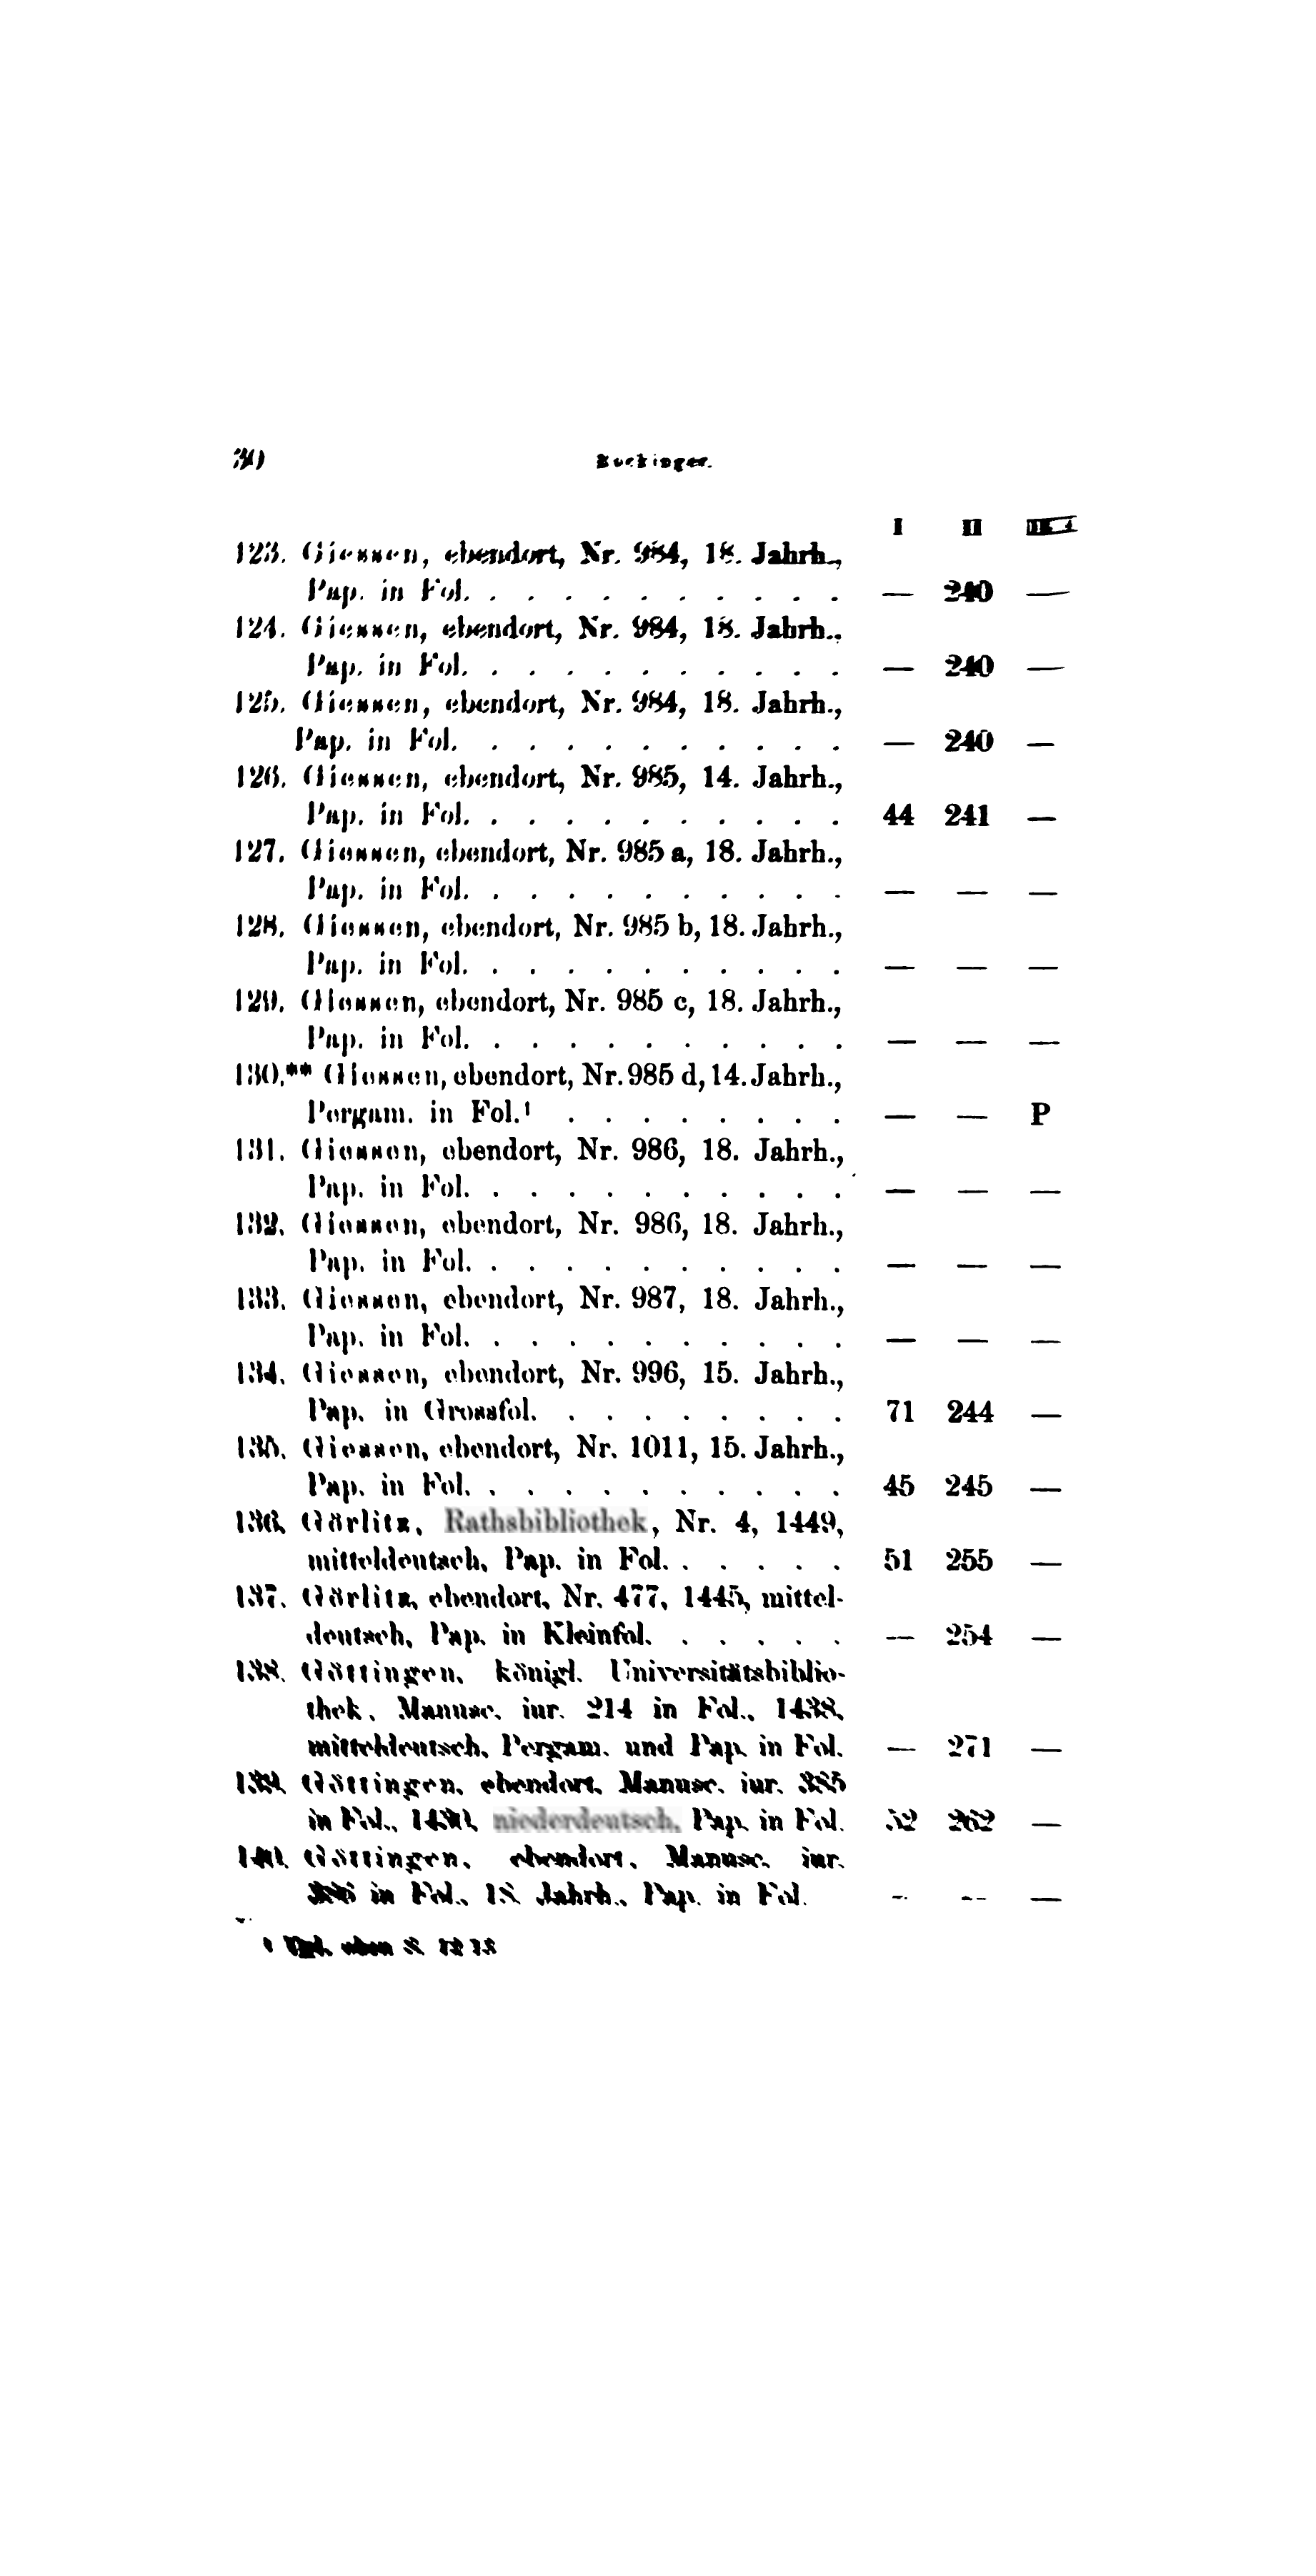 30 Rockinger.
I II III
123. Giessen, ebendort, Nr. 984, 18. Jahrh.,
Pap. in Fol. . . . . . . . . . . — 240 —
124. Giessen, ebendort, Nr. 984, 18. Jahrh.,
Pap. in Fol. . . . . . . . . . . — 240 —
125. Giessen, ebendort, Nr. 984, 18. Jahrh.,
Pap. in Fol. . . . . . . . . . . — 240 —
126. Giessen, ebendort, Nr. 985, 14. Jahrh.,
Pap. in Fol. . . . . . . . . . . 44 241 —
127. Giessen, ebendort, Nr. 985 a, 18. Jahrh.,
Pap. in Fol. . . . . . . . . . . — — —
128. Giessen, ebendort, Nr. 985 b, 18. Jahrh.,
Pap. in Fol. . . . . . . . . . . — — —
129. Giessen, ebendort, Nr. 985 c, 18. Jahrh.,
Pap. in Fol. . . . . . . . . . . — — —
130.** Giessen, ebendort, Nr. 985 d, 14. Jahrh.,
Pergam. in Fol.¹ . . . . . . . . — — P
131. Giessen, ebendort, Nr. 986, 18. Jahrh.,
Pap. in Fol. . . . . . . . . . . — — —
132. Giessen, ebendort, Nr. 986, 18. Jahrh.,
Pap. in Fol. . . . . . . . . . . — — —
133. Giessen, ebendort, Nr. 987, 18. Jahrh.,
Pap. in Fol. . . . . . . . . . . — — —
134. Giessen, ebendort, Nr. 996, 15. Jahrh.,
Pap. in Grossfol. . . . . . . . . 71 244 —
135. Giessen, ebendort, Nr. 1011, 15. Jahrh.,
Pap. in Fol. . . . . . . . . . . 45 245 —
136. Görlitz, Rathsbibliothek, Nr. 4, 1449,
mitteldeutsch, Pap. in Fol. . . . . . 51 255 —
137. Görlitz, ebendort, Nr. 477, 1445, mittel-
deutsch, Pap. in Kleinfol. . . . . . — 254 —
138. Göttingen, königl. Universitätsbiblio-
thek, Manusc. iur. 214 in Fol., 1438,
mitteldeutsch, Pergam. und Pap. in Fol. — 271 —
139. Göttingen, ebendort, Manusc. iur. 385
in Fol., niederdeutsch, Pap. in Fol. 52 262 —
140. Göttingen, ebendort, Manusc. iur.
in Fol., 18. Jahrh., Pap. in Fol. — — —
¹ Vgl. oben S.